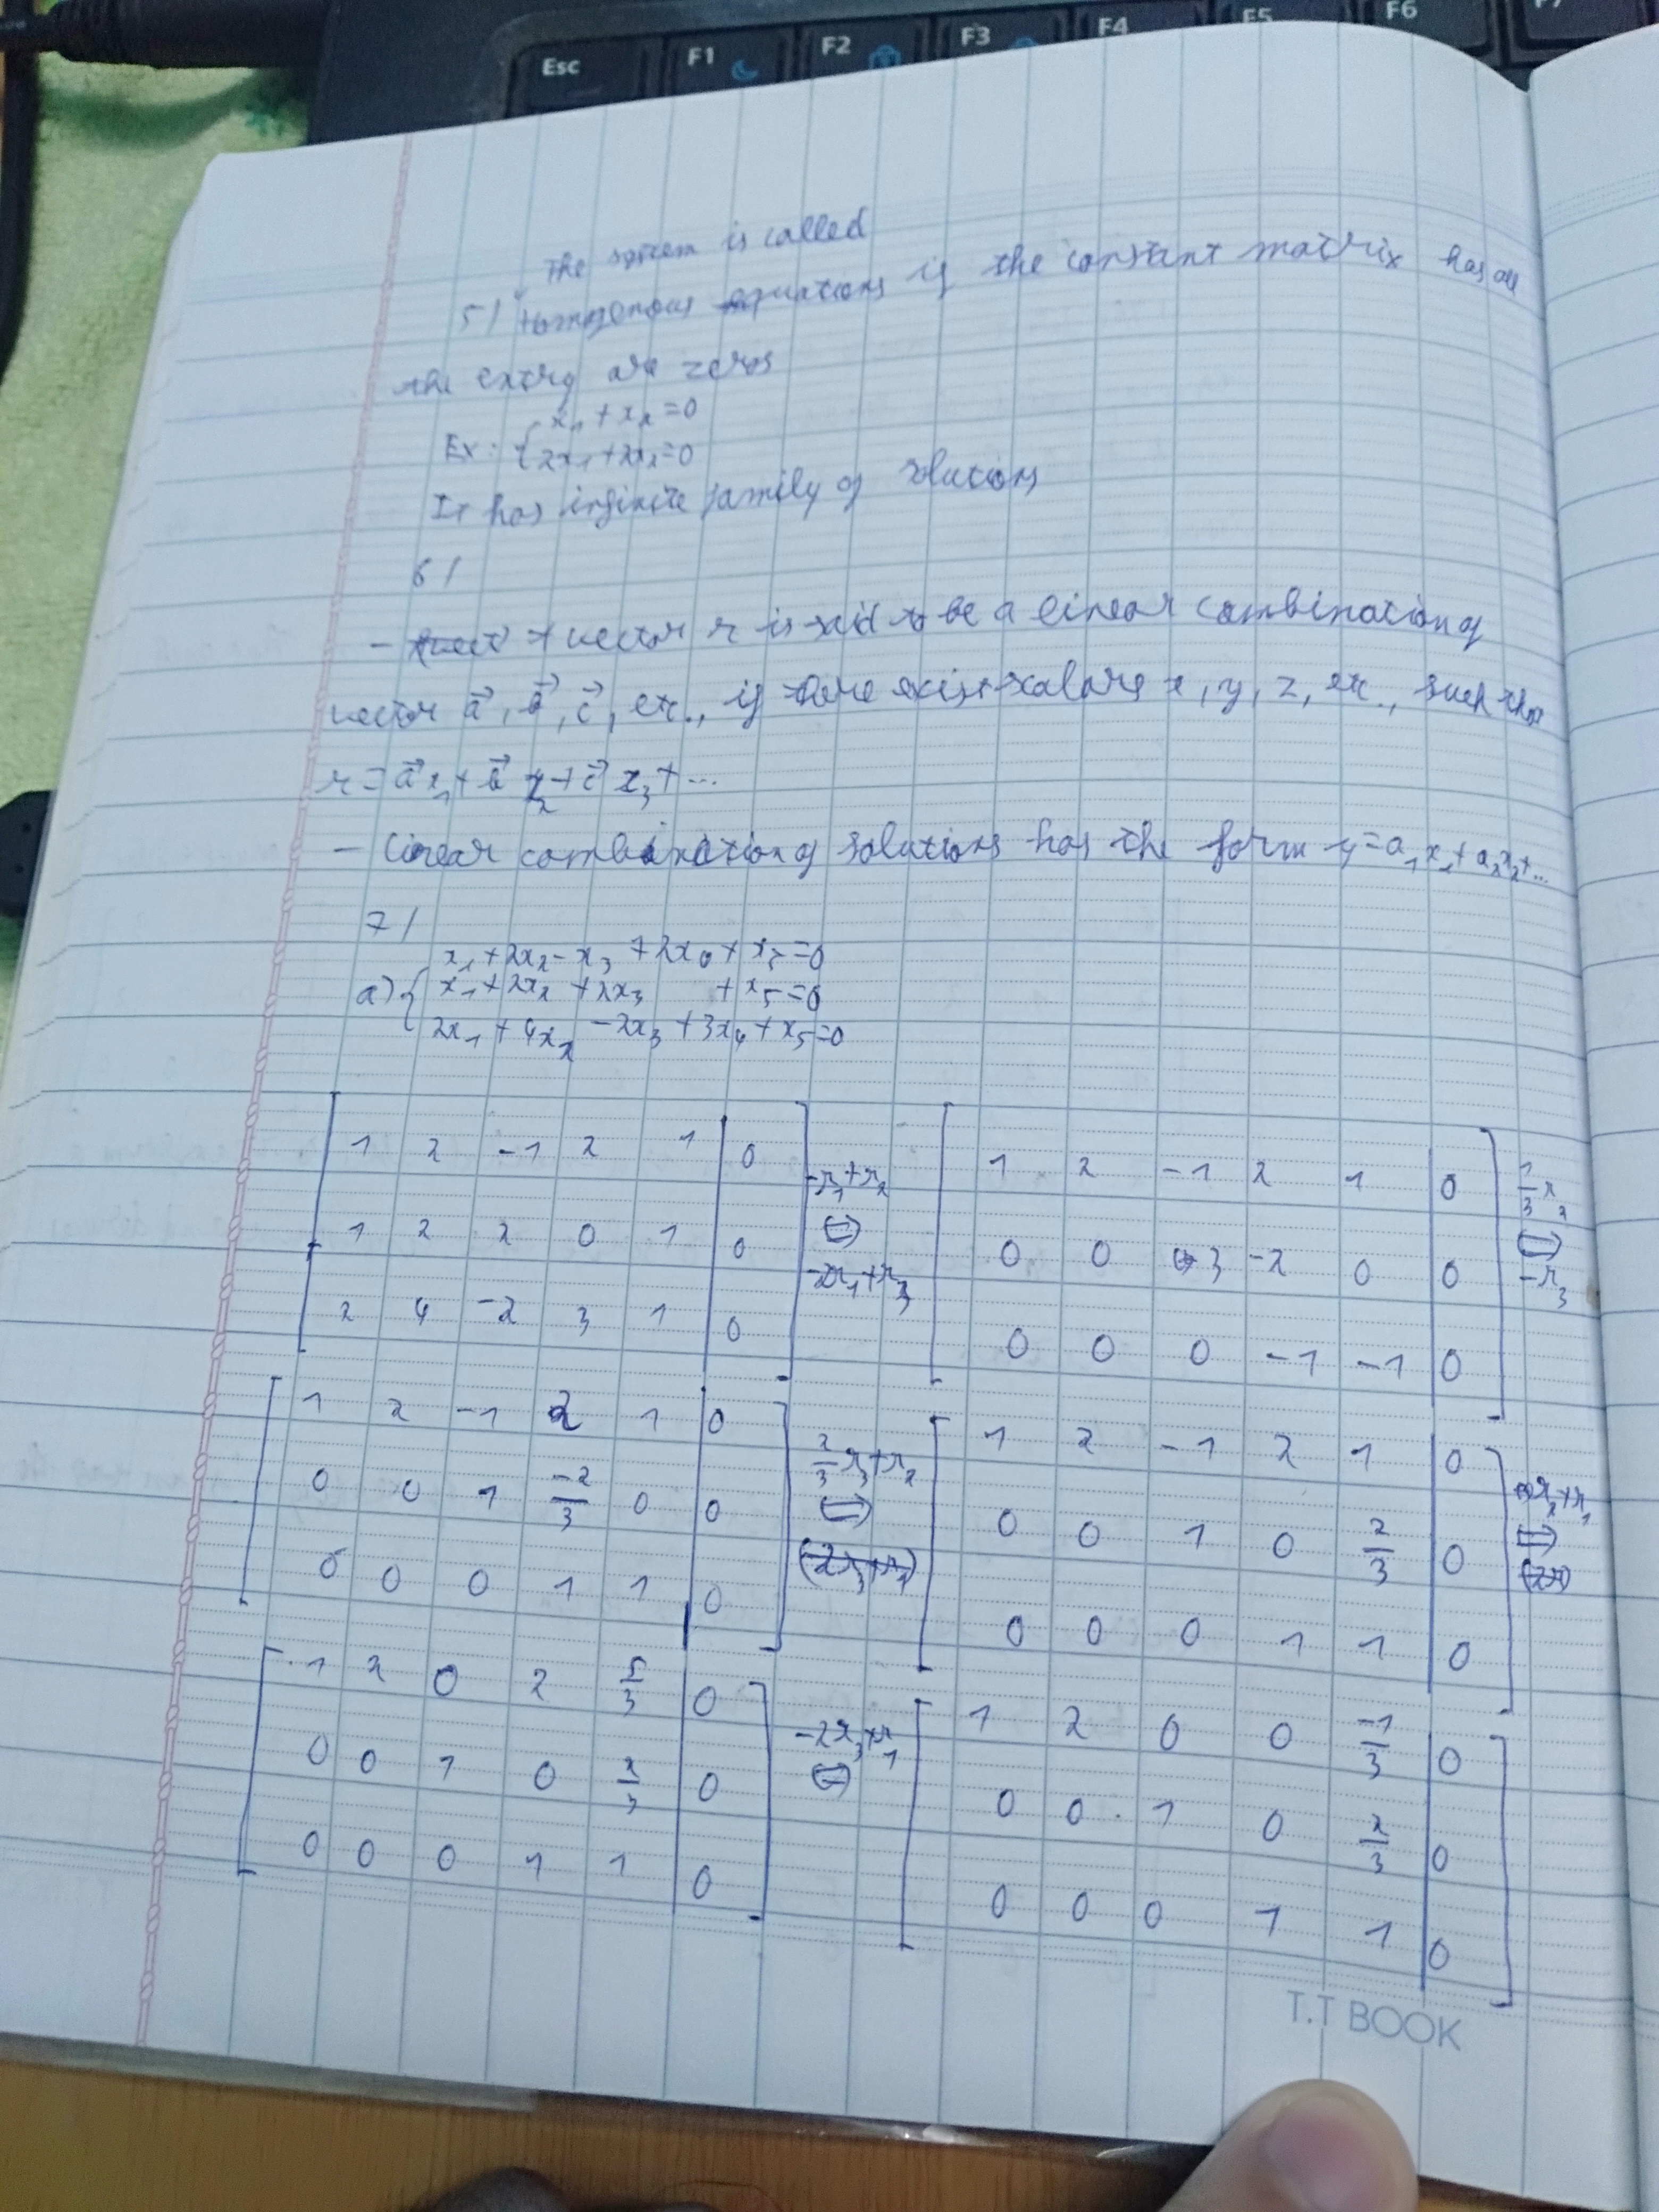 Esc F1 F2 F3 F4 F5 F6 F7
The system is called
5/ Homogenous equations if the constant matrix has all
the entry are zeros
Ex: { x₁ + x₂ = 0
2x₁ + 2x₂ = 0
It has infinite family of solutions
6/
- A vector r is said to be a linear combination of
vector a⃗, b⃗, c⃗, etc., if there exist scalars x, y, z, etc., such that
r = a⃗x₁ + b⃗x₂ + c⃗x₃ + ...
- Linear combination of solutions has the form y = a₁x₁ + a₂x₂ + ...
7/
a) { x₁ + 2x₂ - x₃ + 2x₄ + x₅ = 0
x₁ + 2x₂ + 2x₃ + x₅ = 0
2x₁ + 4x₂ - 2x₃ + 3x₄ + x₅ = 0
[ 1 2 -1 2 1 | 0 ] -r₁+r₂ [ 1 2 -1 2 1 | 0 ] 1/3 r₂
[ 1 2 2 0 1 | 0 ] ⇔ [ 0 0 3 -2 0 | 0 ] ⇔
[ 2 4 -2 3 1 | 0 ] -2r₁+r₃ [ 0 0 0 -1 -1 | 0 ] -r₃
[ 1 2 -1 2 1 | 0 ] 2/3 r₃+r₂ [ 1 2 -1 2 1 | 0 ] r₂+r₁
[ 0 0 1 -2/3 0 | 0 ] ⇔ [ 0 0 1 0 2/3 | 0 ] ⇔
[ 0 0 0 1 1 | 0 ] [ 0 0 0 1 1 | 0 ]
[ 1 2 0 2 5/3 | 0 ] -2r₃+r₁ [ 1 2 0 0 -1/3 | 0 ]
[ 0 0 1 0 2/3 | 0 ] ⇔ [ 0 0 1 0 2/3 | 0 ]
[ 0 0 0 1 1 | 0 ] [ 0 0 0 1 1 | 0 ]
T.T BOOK